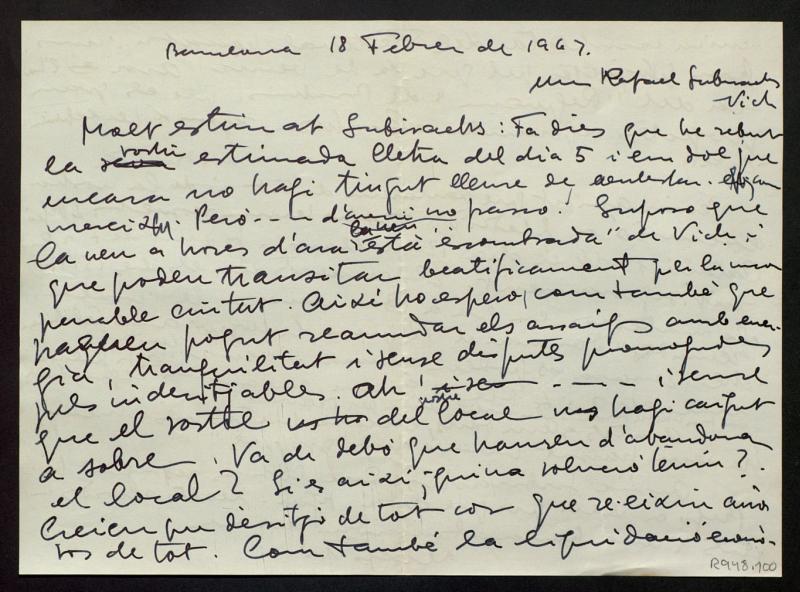 Barcelona 18 Febrer de 1967.
Rafael Subirachs
Vich
Molt estimat Subirachs: Fa dies que he rebut
la seva vostre estimada lletra del dia 5 i em dol que
encara no hagi tingut lleure de contestar.
Però--- d'avui no passo. Suposo que
la neu a hores d'ara la neu està "escombrada" de Vich i
que poden transitar beatíficament per la
ciutat. Així ho espero, com també que
hagueu pogut reanudar els assaigs amb ener-
gia, tranquilitat i sense disputes promogudes
pels indesitjables. Ah! i sen - - - - i sense
que el sostre del vostre local hagi caigut
a sobre. Va de debò que hauran d'abandonar
el local? Si és així, ¿quina solució tenim?
Creieu que desitjo de tot cor que re-eixin airo-
sos de tot. Com també la liquidació econò-
R948.100